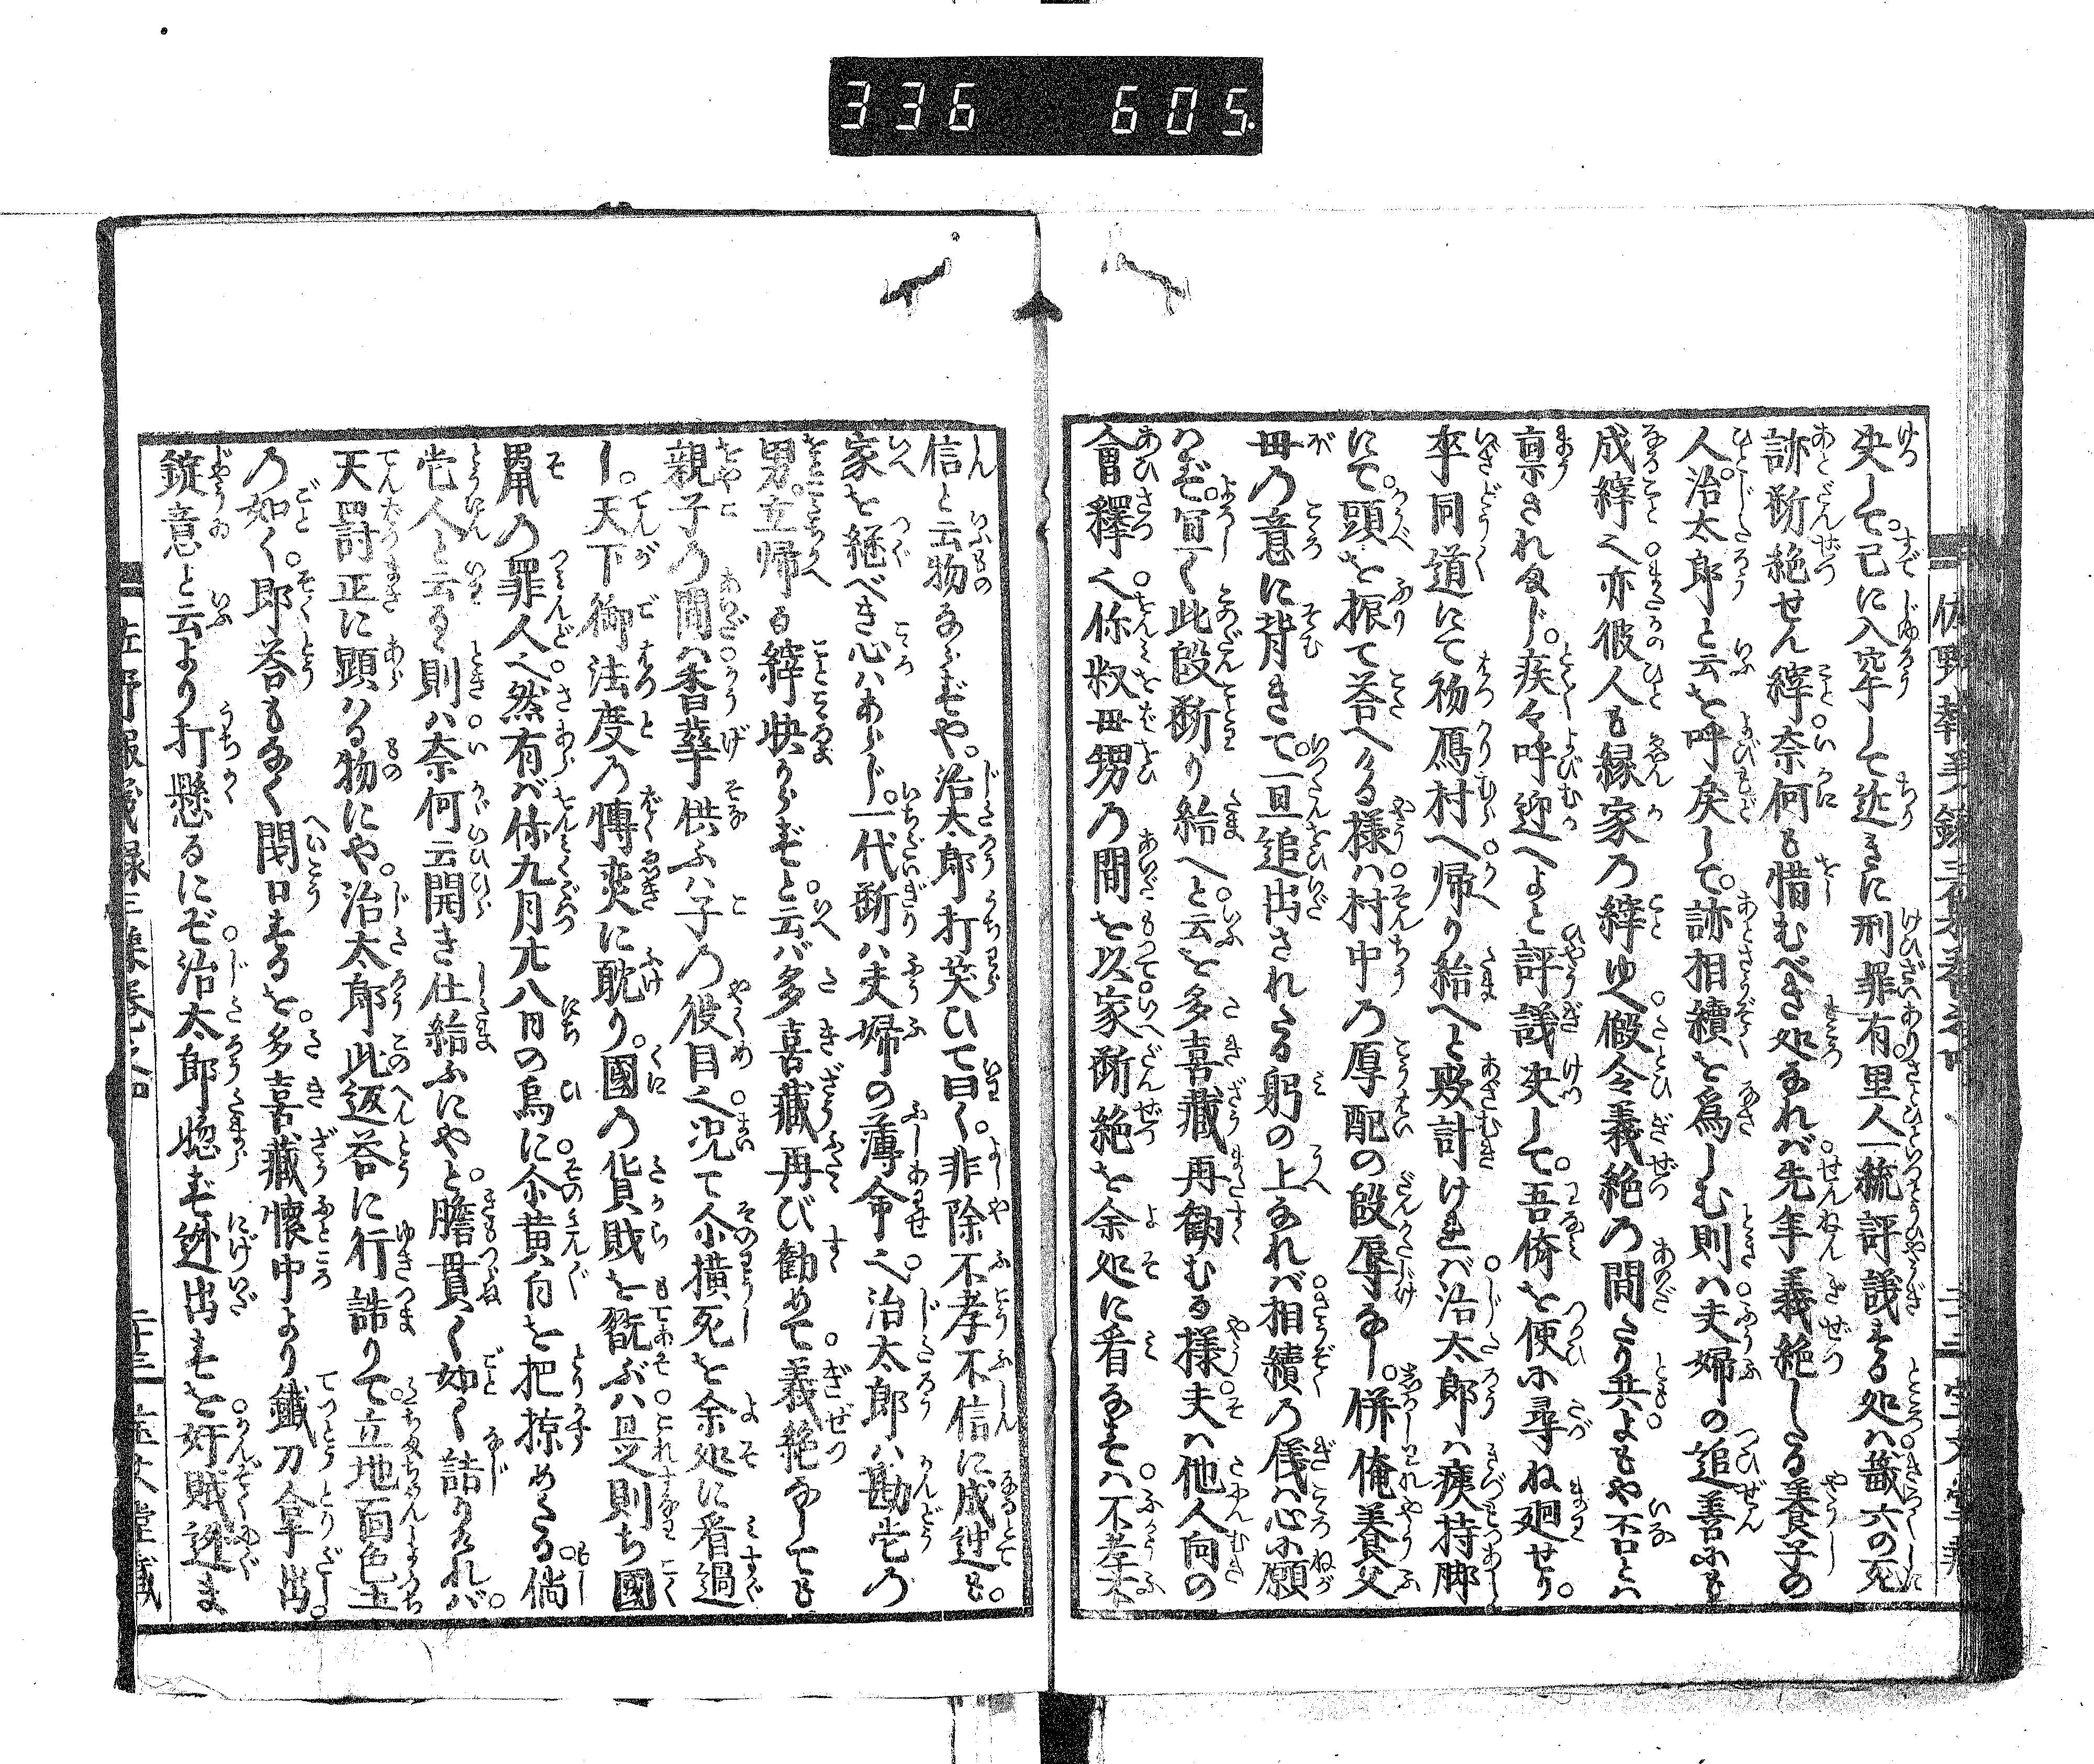 336 605.
決して。已に入牢して近きに刑罪有。里人一統評議する処ハ籖六の死
跡断絶せん縡奈何も惜むべき処なれバ先年義絶したる養子の
人治太郎と云を呼戻して。跡相續を爲しむ則ハ夫婦の追善にも
成縡也亦彼人も縁家の縡ゆへ假令義絶の間たり共よもや否とハ
禀されまじ。疾々呼迎へよと評議決して。吾儕を使に尋ね廻せり。
率同道にて初鴈村へ帰り給へと欺計けれバ治太郎ハ痍持脚
にて。頭を振て答へける様ハ村中の厚配の段辱なし。併俺養父
母の意に背きて。一旦追出されたる躬の上なれバ相續の儀ハ心に願
はず。宜く此段断り給へと云を多喜藏再勧むる様夫ハ他人向の
會釋也你叔母甥の間を以家断絶を余処に看なすハ不孝不
信と云物ならずや。治太郎打笑ひて曰く。非除不孝不信に成迚も。
家を継べき心ハあらじ。一代断ハ夫婦の薄命也。治太郎ハ勘当の
男。立帰る縡快からずと云バ多喜藏再び勧めて。義絶なしても
親子の間ハ香華供ふハ子の役目也况て尒横死を余処に看過
し。天下御法度の愽奕に耽り。國の貨賎を翫ぶハ是則ち國
の罪人也然有バ你九月廿八日の烏に尒黄白を把掠めたる倘
当人と云るゝ則ハ奈何云開き仕給ふにやと。膽貫く如く詰りけれバ。
天罰正に顕ハる物にや。治太郎此返答に行詰りて。立地面色土
の如く。郎答もなく閉口するを。多喜藏懐中より鐵刀拿出し。
錠意と云より打懸るにぞ治太郎惚ず迯出すを奸賊迯ま